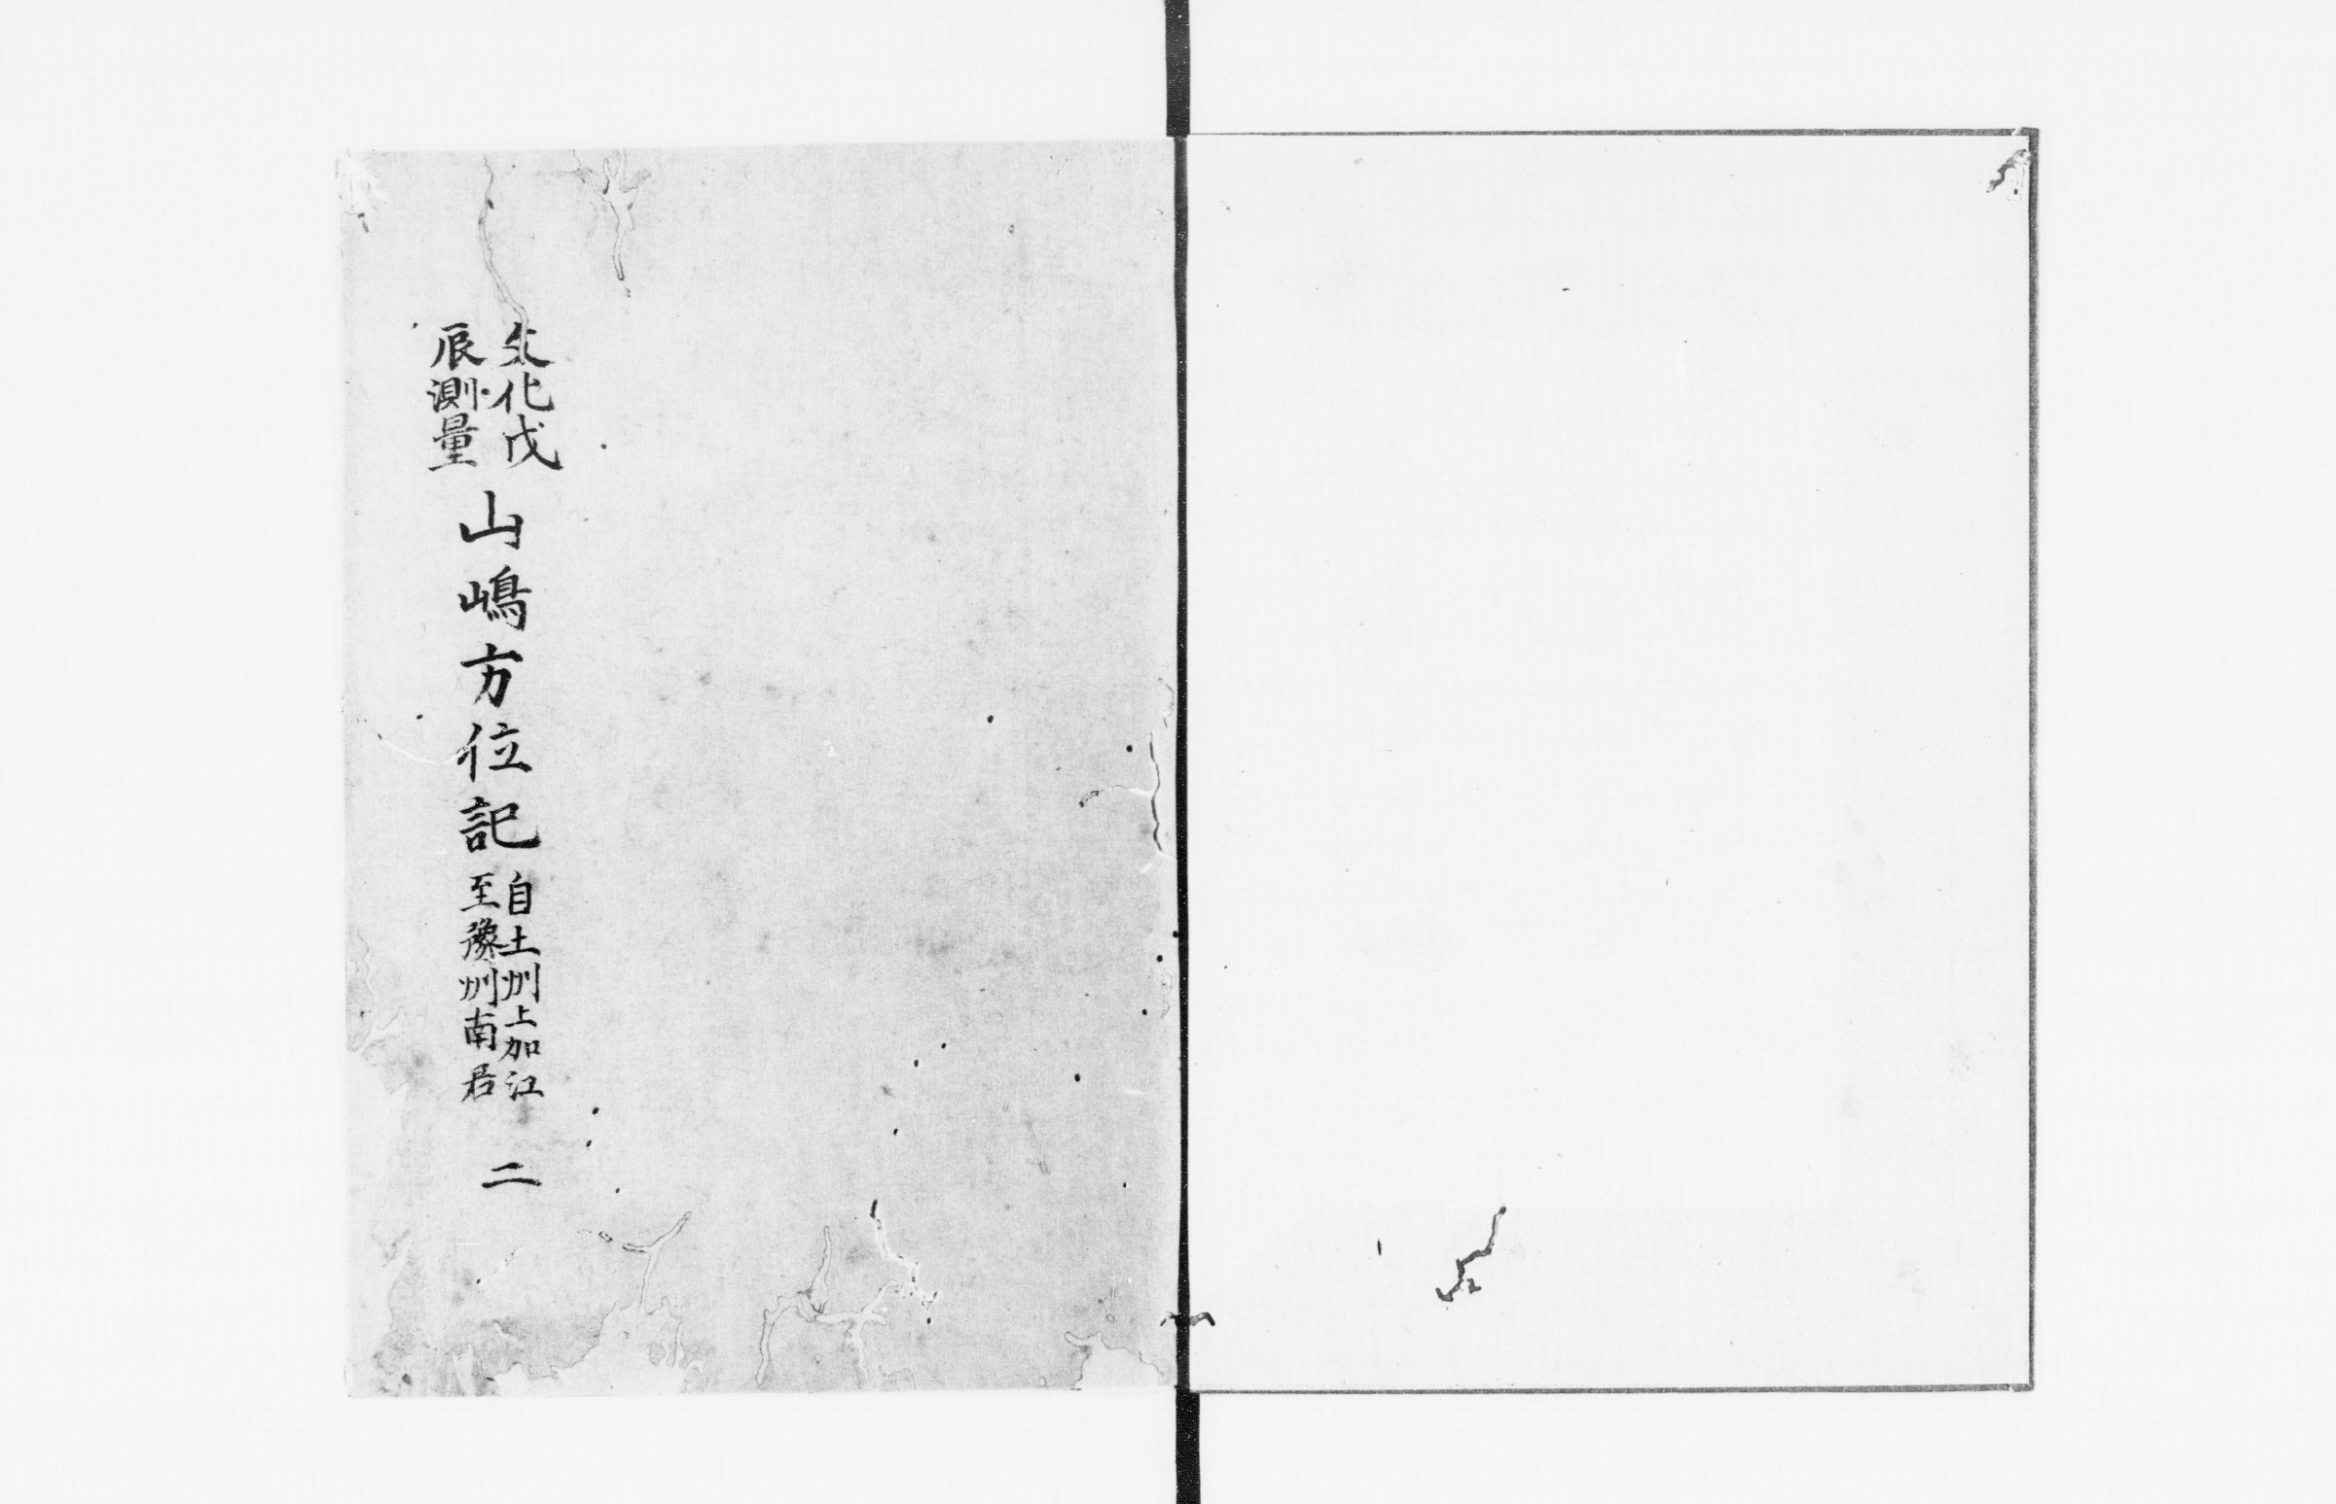 文化戊
辰測量
山嶋方位記
自土州上加江
至豫州南君
二